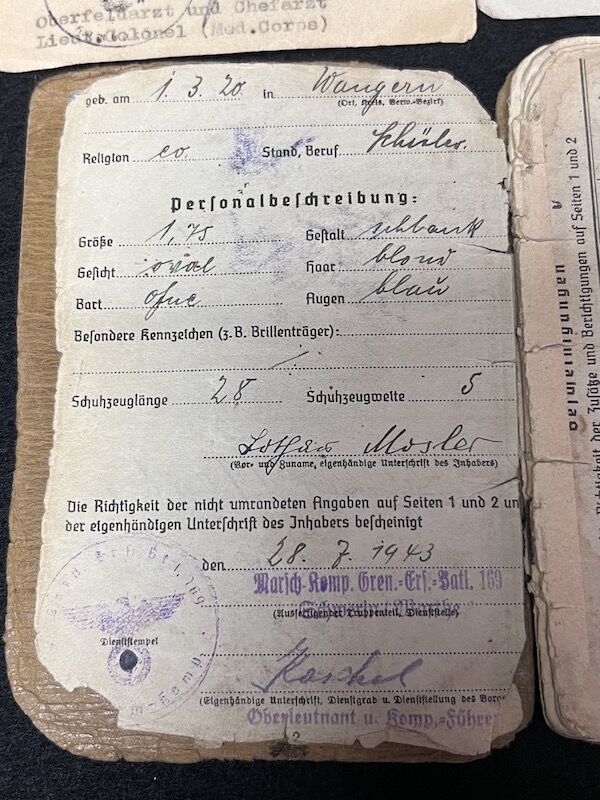 Oberfeldarzt und Chefarzt
Lieut.Colonel (Med.Corps)
geb. am 1. 3. 20 in Wangern
(Ort, Kreis, Verw.-Bezirk)
Religion ev. Stand, Beruf Schüler.
Personalbeschreibung:
Größe 1,75 Gestalt schlank
Gesicht oval Haar blond
Bart ohne Augen blau
Besondere Kennzeichen (z.B. Brillenträger):
Schuhzeuglänge 28 Schuhzeugweite 5
Lothar Mosler
(Vor- und Zuname, eigenhändige Unterschrift des Inhabers)
Die Richtigkeit der nicht umrandeten Angaben auf Seiten 1 und 2 un
der eigenhändigen Unterschrift des Inhabers bescheinigt
den 28. 7. 1943
Marsch-Komp. Gren.-Ers.-Batl. 169
(Ausfertigender Truppenteil, Dienststelle)
Dienststempel
(Eigenhändige Unterschrift, Dienstgrad u. Dienststellung des Vorge
Oberleutnant u. Komp.-Führer
2
Bescheinigungen
der Zusätze und Berichtigungen auf Seiten 1 und 2